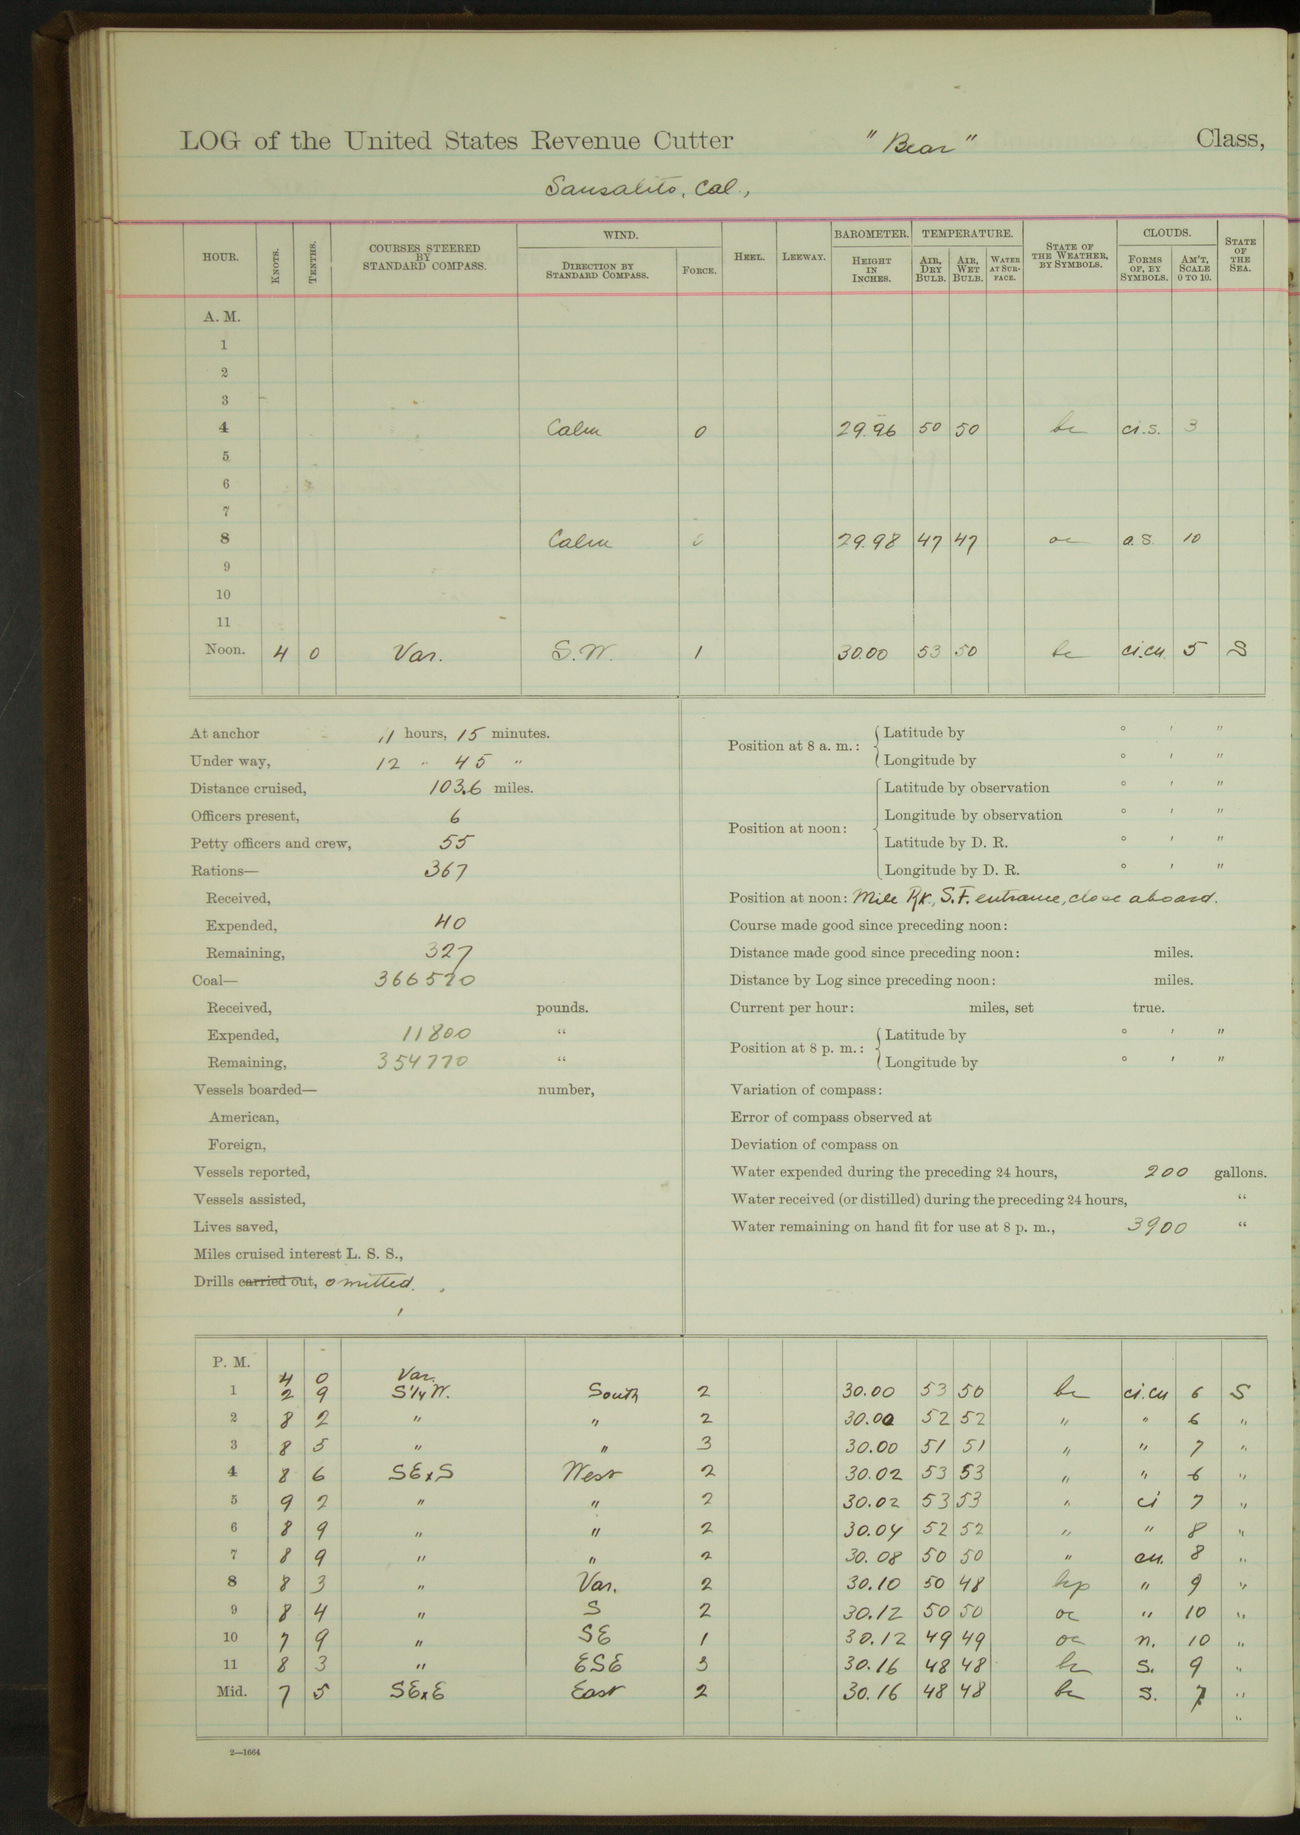 LOG of the United States Revenue Cutter "Bear" Class,
Sausalito, Cal.,
HOUR. KNOTS. TENTHS. COURSES STEERED BY STANDARD COMPASS. WIND. DIRECTION BY STANDARD COMPASS. FORCE. HEEL. LEEWAY. BAROMETER. HEIGHT IN INCHES. TEMPERATURE. AIR, DRY BULB. AIR, WET BULB. WATER AT SURFACE. STATE OF THE WEATHER, BY SYMBOLS. CLOUDS. FORMS OF, BY SYMBOLS. AM'T, SCALE 0 TO 10. STATE OF THE SEA.
A. M.
1
2
3
4 Calm 0 29.96 50 50 bc ci.s. 3
5
6
7
8 Calm 0 29.98 47 47 oc a.s. 10
9
10
11
Noon. 4 0 Var. S.W. 1 30.00 53 50 bc ci.cu. 5 S
At anchor 11 hours, 15 minutes.
Under way, 12 " 45 "
Distance cruised, 103.6 miles.
Officers present, 6
Petty officers and crew, 55
Rations— 367
Received,
Expended, 40
Remaining, 327
Coal— 366570
Received, pounds.
Expended, 11800 "
Remaining, 354770 "
Vessels boarded— number,
American,
Foreign,
Vessels reported,
Vessels assisted,
Lives saved,
Miles cruised interest L. S. S.,
Drills carried out, omitted.
Position at 8 a. m.: Latitude by ° ' "
Longitude by ° ' "
Position at noon: Latitude by observation ° ' "
Longitude by observation ° ' "
Latitude by D. R. ° ' "
Longitude by D. R. ° ' "
Position at noon: Mile Rk., S.F. entrance, close aboard.
Course made good since preceding noon:
Distance made good since preceding noon: miles.
Distance by Log since preceding noon: miles.
Current per hour: miles, set true.
Position at 8 p. m.: Latitude by ° ' "
Longitude by ° ' "
Variation of compass:
Error of compass observed at
Deviation of compass on
Water expended during the preceding 24 hours, 200 gallons.
Water received (or distilled) during the preceding 24 hours, "
Water remaining on hand fit for use at 8 p. m., 3900 "
P. M.
4 0 Var.
1 2 9 S¼W. South 2 30.00 53 50 bc ci.cu 6 S
2 8 2 " " 2 30.00 52 52 " " 6 "
3 8 5 " " 3 30.00 51 51 " " 7 "
4 8 6 SExS West 2 30.02 53 53 " " 6 "
5 9 2 " " 2 30.02 53 53 " ci 7 "
6 8 9 " " 2 30.04 52 52 " " 8 "
7 8 9 " " 2 30.08 50 50 " cu. 8 "
8 8 3 " Var. 2 30.10 50 48 " 9 "
9 8 4 " S 2 30.12 50 50 oc " 10 "
10 7 9 " SE 1 30.12 49 49 oc n. 10 "
11 8 3 " ESE 3 30.16 48 48 bc s. 9 "
Mid. 7 5 SExE East 2 30.16 48 48 bc s. 7 "
"
2—1664